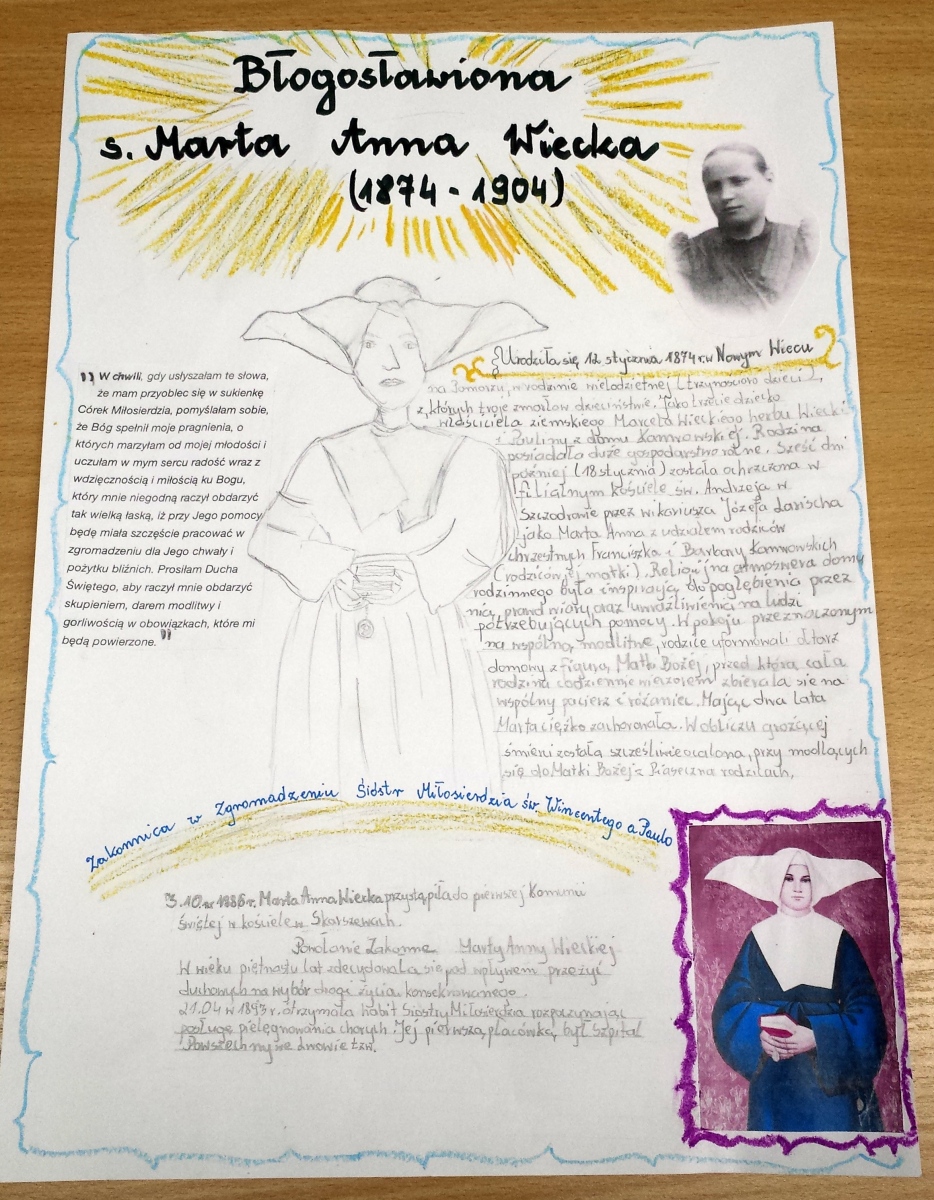 Błogosławiona
s. Marta Anna Wiecka
(1874 - 1904)
" W chwili, gdy usłyszałam te słowa,
że mam przyoblec się w sukienkę
Córek Miłosierdzia, pomyślałam sobie,
że Bóg spełnił moje pragnienia, o
których marzyłam od mojej młodości i
uczułam w mym sercu radość wraz z
wdzięcznością i miłością ku Bogu,
który mnie niegodną raczył obdarzyć
tak wielką łaską, iż przy Jego pomocy
będę miała szczęście pracować w
zgromadzeniu dla Jego chwały i
pożytku bliźnich. Prosiłam Ducha
Świętego, aby raczył mnie obdarzyć
skupieniem, darem modlitwy i
gorliwością w obowiązkach, które mi
będą powierzone. "
Urodziła się 12 stycznia 1874 r. w Nowym Wiecu
na Pomorzu, w rodzinie wielodzietnej (trzynaścioro dzieci),
z których troje zmarło w dzieciństwie. Jako trzecie dziecko
właściciela ziemskiego Marcela Wieckiego herbu Wiecki
i Pauliny z domu Kamrowskiej. Rodzina
posiadała duże gospodarstwo rolne. Sześć dni
później (18 stycznia) została ochrzczona w
filialnym kościele św. Andrzeja w
Szczodrowie przez wikariusza Józefa
jako Marta Anna z udziałem rodziców
chrzestnych Franciszka i Barbary Kamrowskich
(rodziców jej matki). Religijna atmosfera domu
rodzinnego była inspiracją do pogłębienia przez
nią prawd wiary oraz uwrażliwienia na ludzi
potrzebujących pomocy. W pokoju przeznaczonym
na wspólną modlitwę, rodzice uformowali ołtarz
domowy z figurą Matki Bożej, przed którą cała
rodzina codziennie wieczorem zbierała się na
wspólny pacierz i różaniec. Mając dwa lata
Marta ciężko zachorowała. W obliczu grożącej
śmierci została szczęśliwie ocalona, przy modlących
się do Matki Bożej z Piaseczna rodzicach.
Zakonnica w Zgromadzeniu Sióstr Miłosierdzia św. Wincentego a Paulo
3.10.w 1886 r. Marta Anna Wiecka przystąpiła do pierwszej Komunii
świętej w kościele w Skarszewach.
Powołanie Zakonne Marty Anny Wieckiej
W wieku piętnastu lat zdecydowała się pod wpływem przeżyć
duchowych na wybór drogi życia konsekrowanego.
21.04 w 1893 r. otrzymała habit Siostry Miłosierdzia rozpoczynając
posługę pielęgnowania chorych. Jej pierwszą placówką był Szpital
Powszechny we Lwowie tzw.